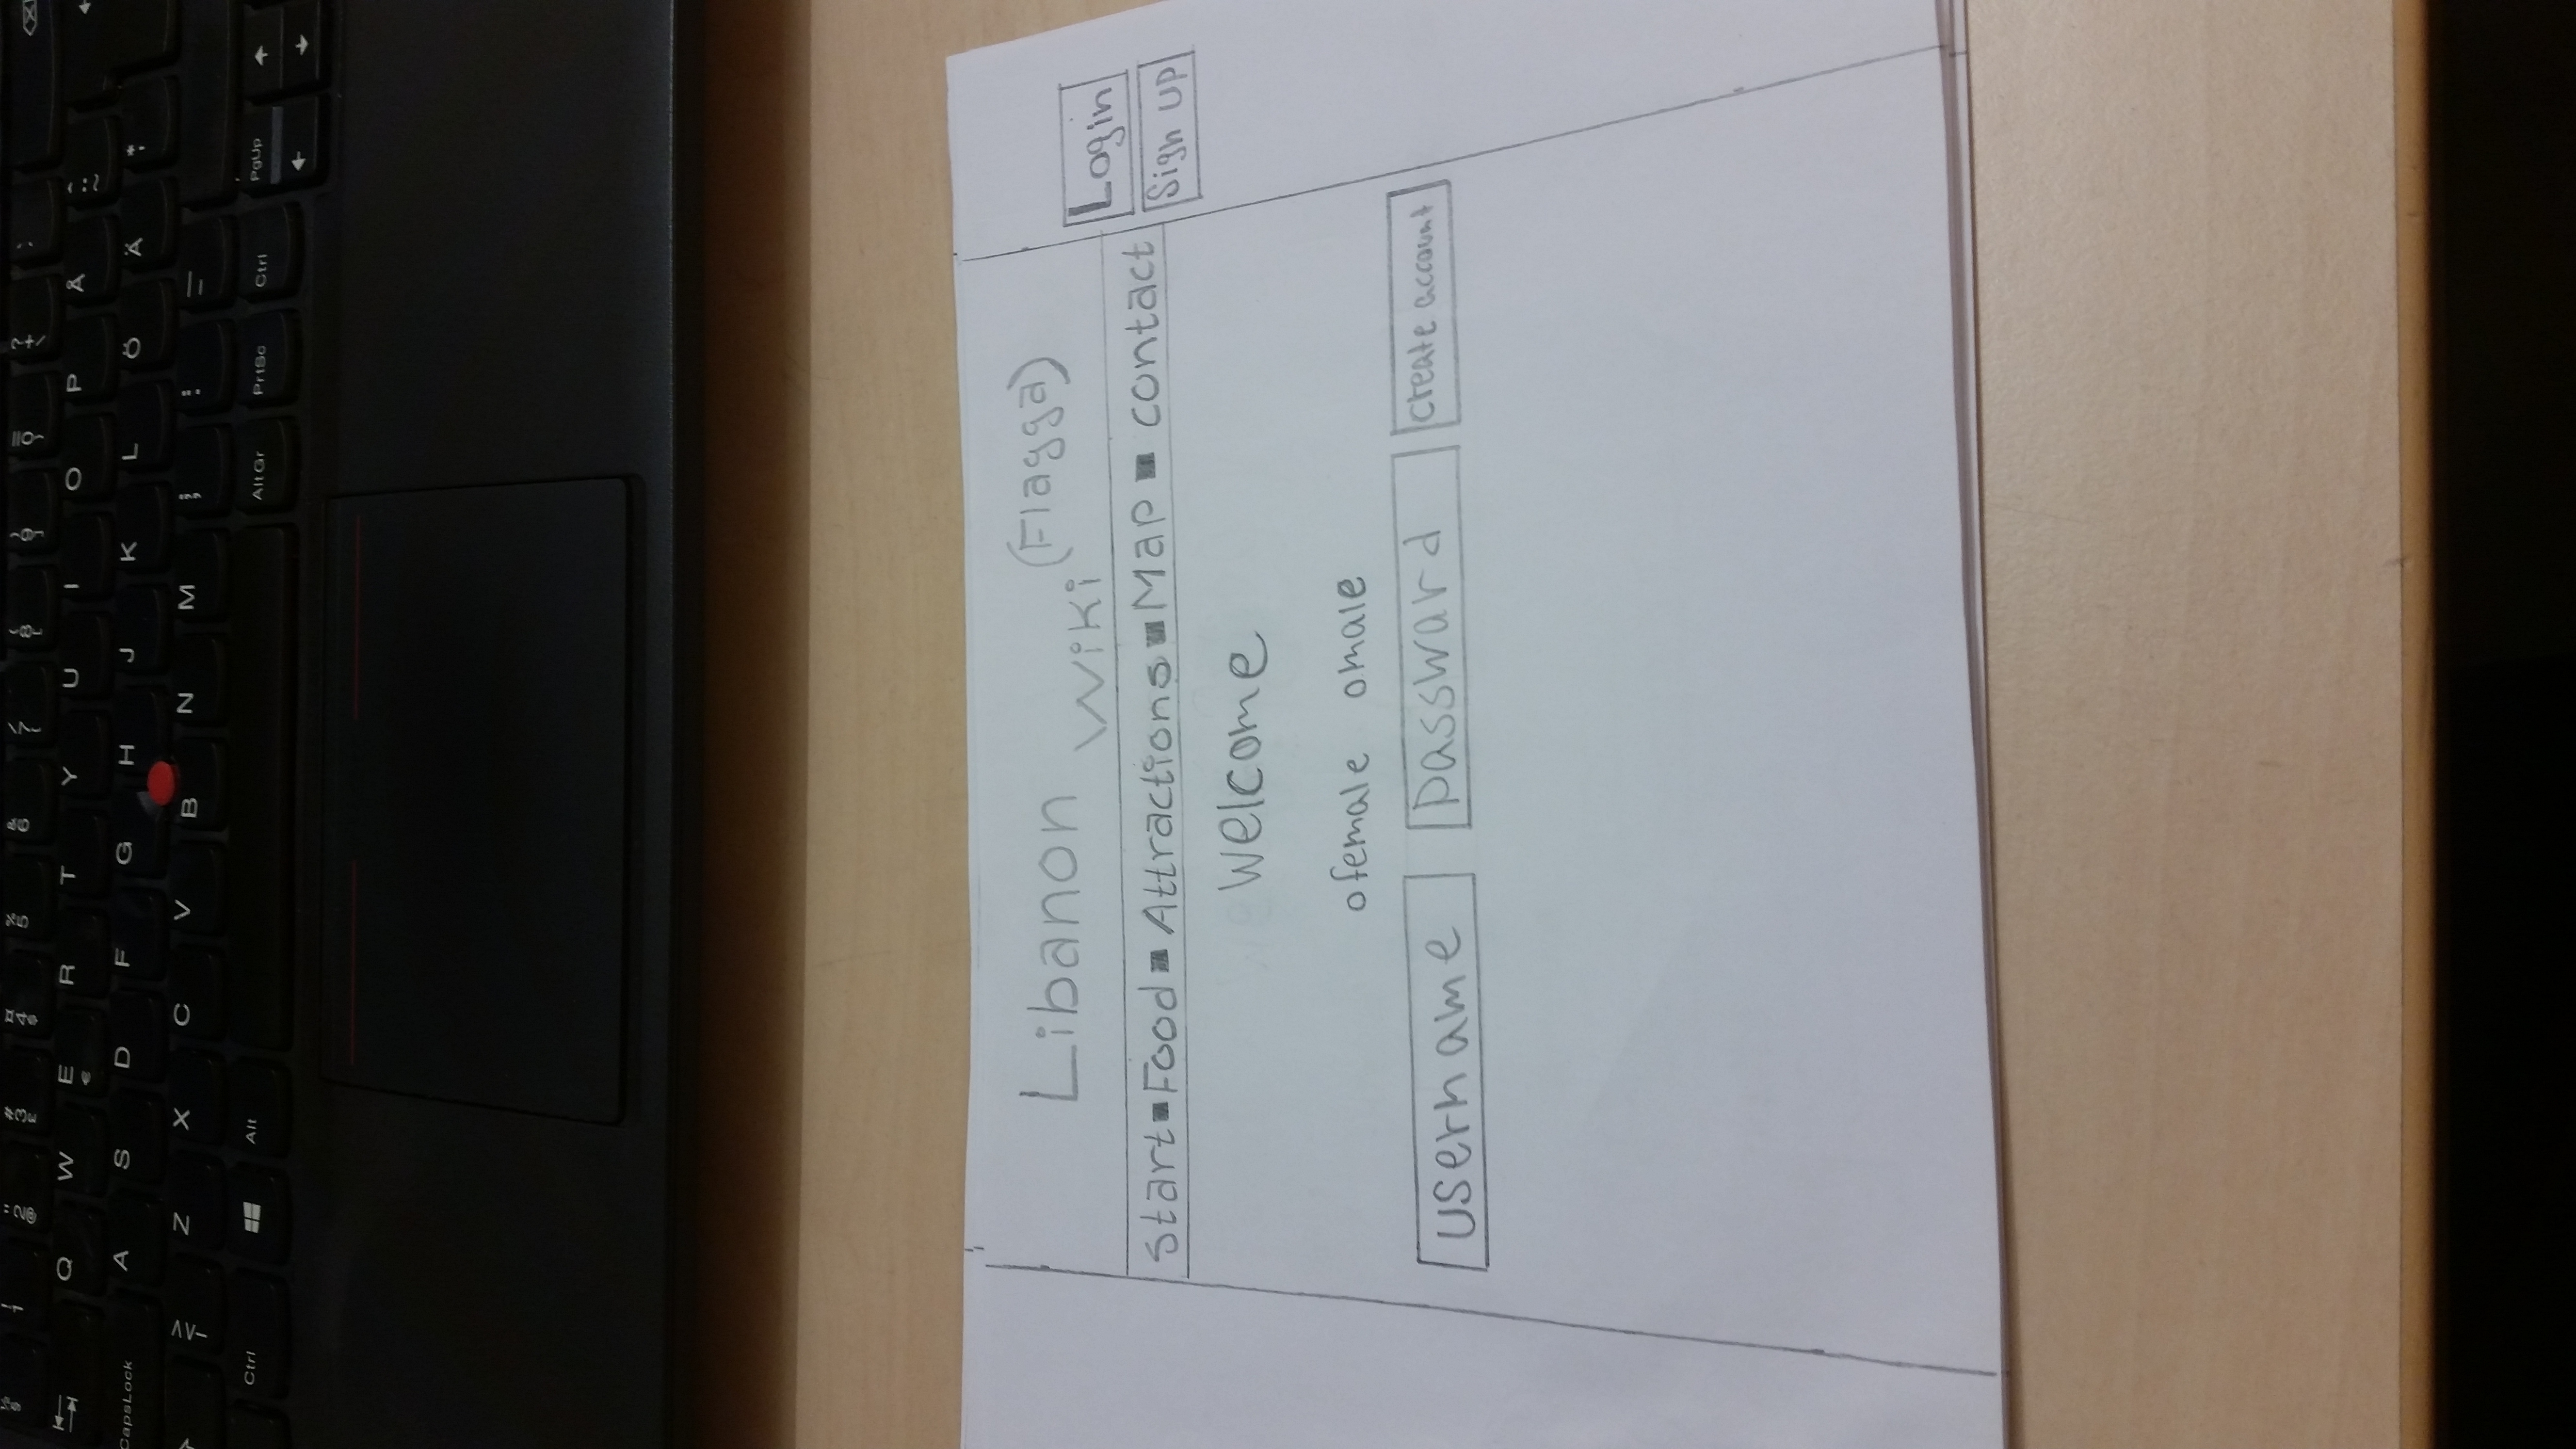 Q W E R T Y U I O P Å
€
CapsLock A S D F G H J K L Ö Ä
Z X C V B N M
Ctrl Alt AltGr PrtSc Ctrl PgUp
Libanon Wiki (Flagga)
Login
Start Food Attractions Map contact
Sign up
Welcome
female male
username passward create account